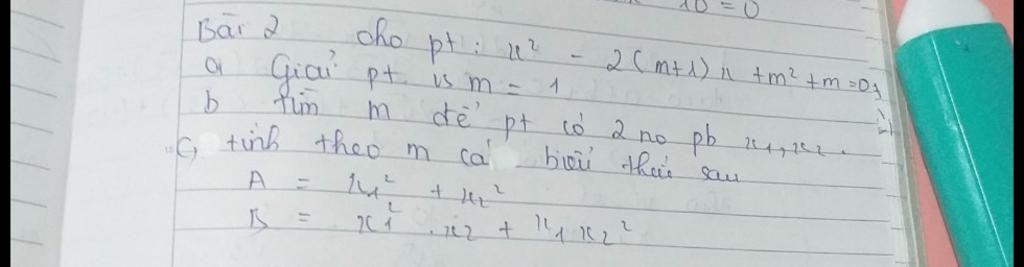 10 = 0
Bài 2 cho pt : x² - 2(m+1)x + m² + m = 0
a Giải pt vs m = 1
b tìm m để pt có 2 no pb x₁, x₂.
c, tính theo m các biểu thức sau
A = x₁² + x₂²
B = x₁² . x₂ + x₁ x₂²